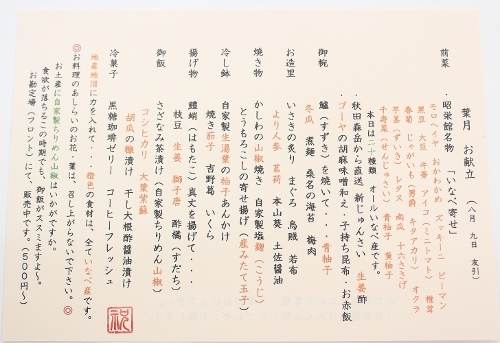 葉月　お献立　（八月　九日　友引）
前菜　・昭栄館名物　「いなべ寄せ」
モロヘイヤ　おかわかめ　ズッキーニ　ピーマン
黒豆　大豆　牛蒡　アメーコ（ミニトマト）　椎茸
春菊　じゃがいも（男爵　キタアカリ）　オクラ
芋茎（ずいき）　レタス　南瓜　十六ささげ
千寿菜（せんじゅさい）　青柚子　黄柚子
本日は二十種類　オールいなべ産です。
・秋田森岳から直送　新じゅんさい　生姜酢
・ゴーヤの胡麻味噌和え、子持ち昆布・お赤飯
御椀　鱸（すずき）を焼いて・・・　青柚子
冬瓜　煮麺　桑名の海苔　梅肉
お造里　いさきの炙り　まぐろ　烏賊　若布
より人参　茗荷　本山葵　土佐醤油
焼き物　かしわの山椒焼き　自家製塩麹（こうじ）
とうもろこしの寄せ揚げ　［産みたて玉子］
冷し鉢　自家製生湯葉の柚子あんかけ
焼き茄子　吉野葛　いくら
揚げ物　鱧蛸（はもたこ）真丈を揚げて・・・
枝豆　生姜　獅子唐　酢橘（すだち）
御飯　さざなみ茶漬け（自家製ちりめん山椒）
コシヒカリ　大葉紫蘇
胡瓜の糠漬け　干し大根酢醤油漬け
冷菓子　黒糖珈琲ゼリー　コーヒーフレッシュ
地産地消に力を入れて・・橙色の食材は、全ていなべ産です。
◎お料理のあしらいのお花、葉は、召し上がらないで下さい。◎
お土産に自家製ちりめん山椒はいかがですか。
食欲が落ちるこの時期でも、御飯がススミますよ～。
お勘定場（フロント）にて、販売中です。（５００円～）
祝